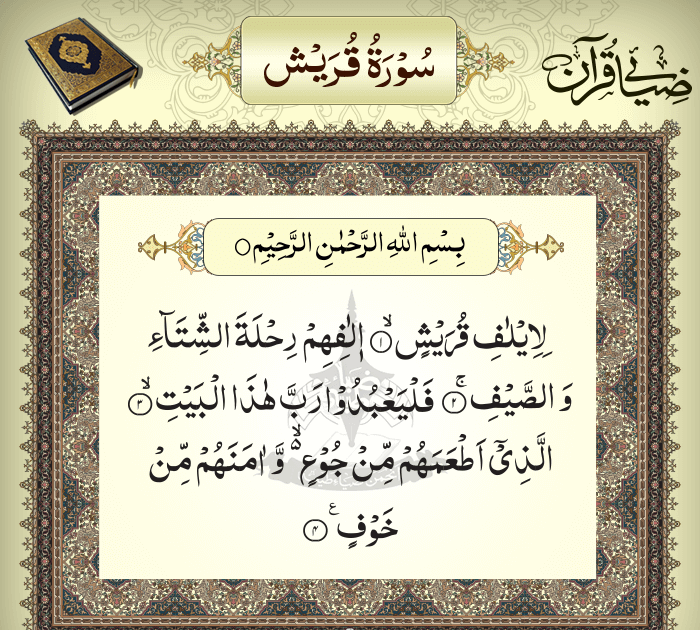 سُوْرَۃُ قُرَیْش
ضیائے قرآن
بِسْمِ اللہِ الرَّحْمٰنِ الرَّحِیْمِ○
لِاِیْلٰفِ قُرَیْشٍۙ﴿۱﴾ اٖلٰفِهِمْ رِحْلَةَ الشِّتَآءِ
وَ الصَّیْفِۚ﴿۲﴾ فَلْیَعْبُدُوْا رَبَّ هٰذَا الْبَیْتِۙ﴿۳﴾
الَّذِیْۤ اَطْعَمَهُمْ مِّنْ جُوْعٍ ۬ۙ وَّ اٰمَنَهُمْ مِّنْ
خَوْفٍ ﴿۴﴾ ع